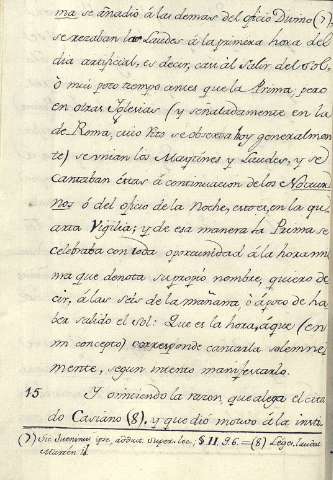 ma se añadió á las demas del oficio Divino (7)
se rezaban las Laudes á la primera hora del
dia artificial, es decir, casi al salir del sol,
ó mui poco tiempo antes que la Prima, pero
en otras Iglesias (y señaladamente en la
de Roma, cuio Rito se observa hoy generalmen
te) se unian los Maytines y Laudes, y se
cantaban éstas á continuacion de los Noctur
nos ó del oficio de la Noche, esto es, en la qu
arta Vigilia; y de esa manera la Prima se
celebraba con toda oportunidad á la hora mis
ma que denota su propio nombre, quiero de
cir, á las seis de la mañana ó á poco de ha
ber salido el sol: Que es la hora, á que (en
mi concepto) corresponde cantarla solemne
mente, segun intento manifestarlo.
15 Y omitiendo la razon, que alega el cita
do Casiano (8), y que dió motivo á la insti
(7) Sic super §. II. 96. = (8)